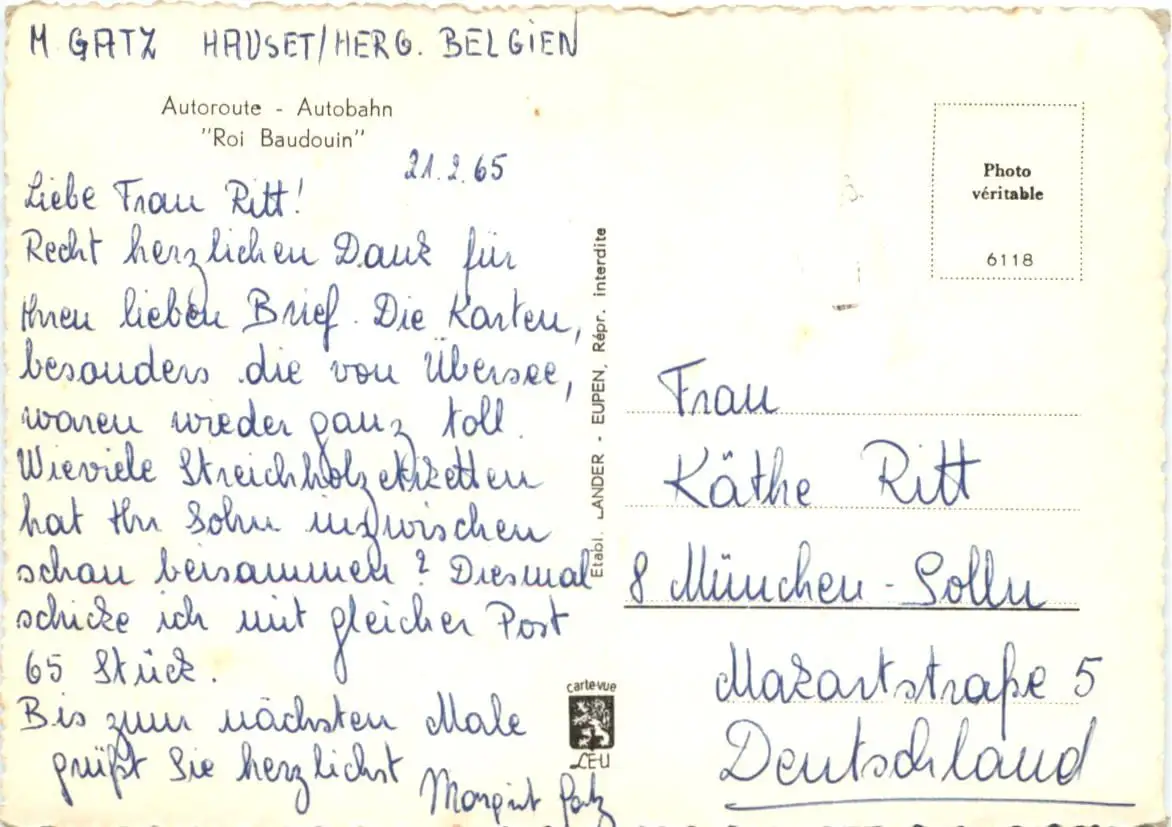 M. GATZ HAUSET/HERG. BELGIEN
Autoroute - Autobahn
"Roi Baudouin"
21.2.65
Liebe Frau Ritt!
Recht herzlichen Dank für
Ihren lieben Brief. Die Karten,
besonders die von Übersee,
waren wieder ganz toll.
Wieviele Streichholzetiketten
hat Ihr Sohn inzwischen
schon beisammen? Diesmal
schicke ich mit gleicher Post
65 Stück.
Bis zum nächsten Male
grüßt Sie herzlichst
Margint Gatz
Etabl. LANDER - EUPEN, Répr. interdite
carte-vue
LEU
Photo
véritable
6118
Frau
Käthe Ritt
8 München-Solln
Mozartstraße 5
Deutschland